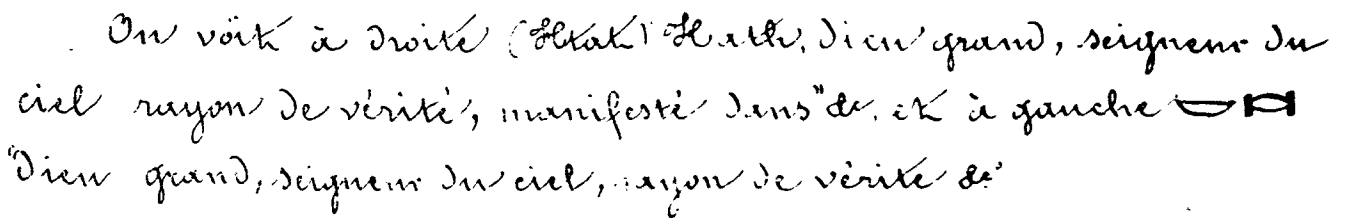 On voit à droite (Htat) Hath, dieu grand, seigneur du
ciel rayon de vérité, manifesté dans" &c. et à gauche
"Dieu grand, seigneur du ciel, rayon de vérité &c"